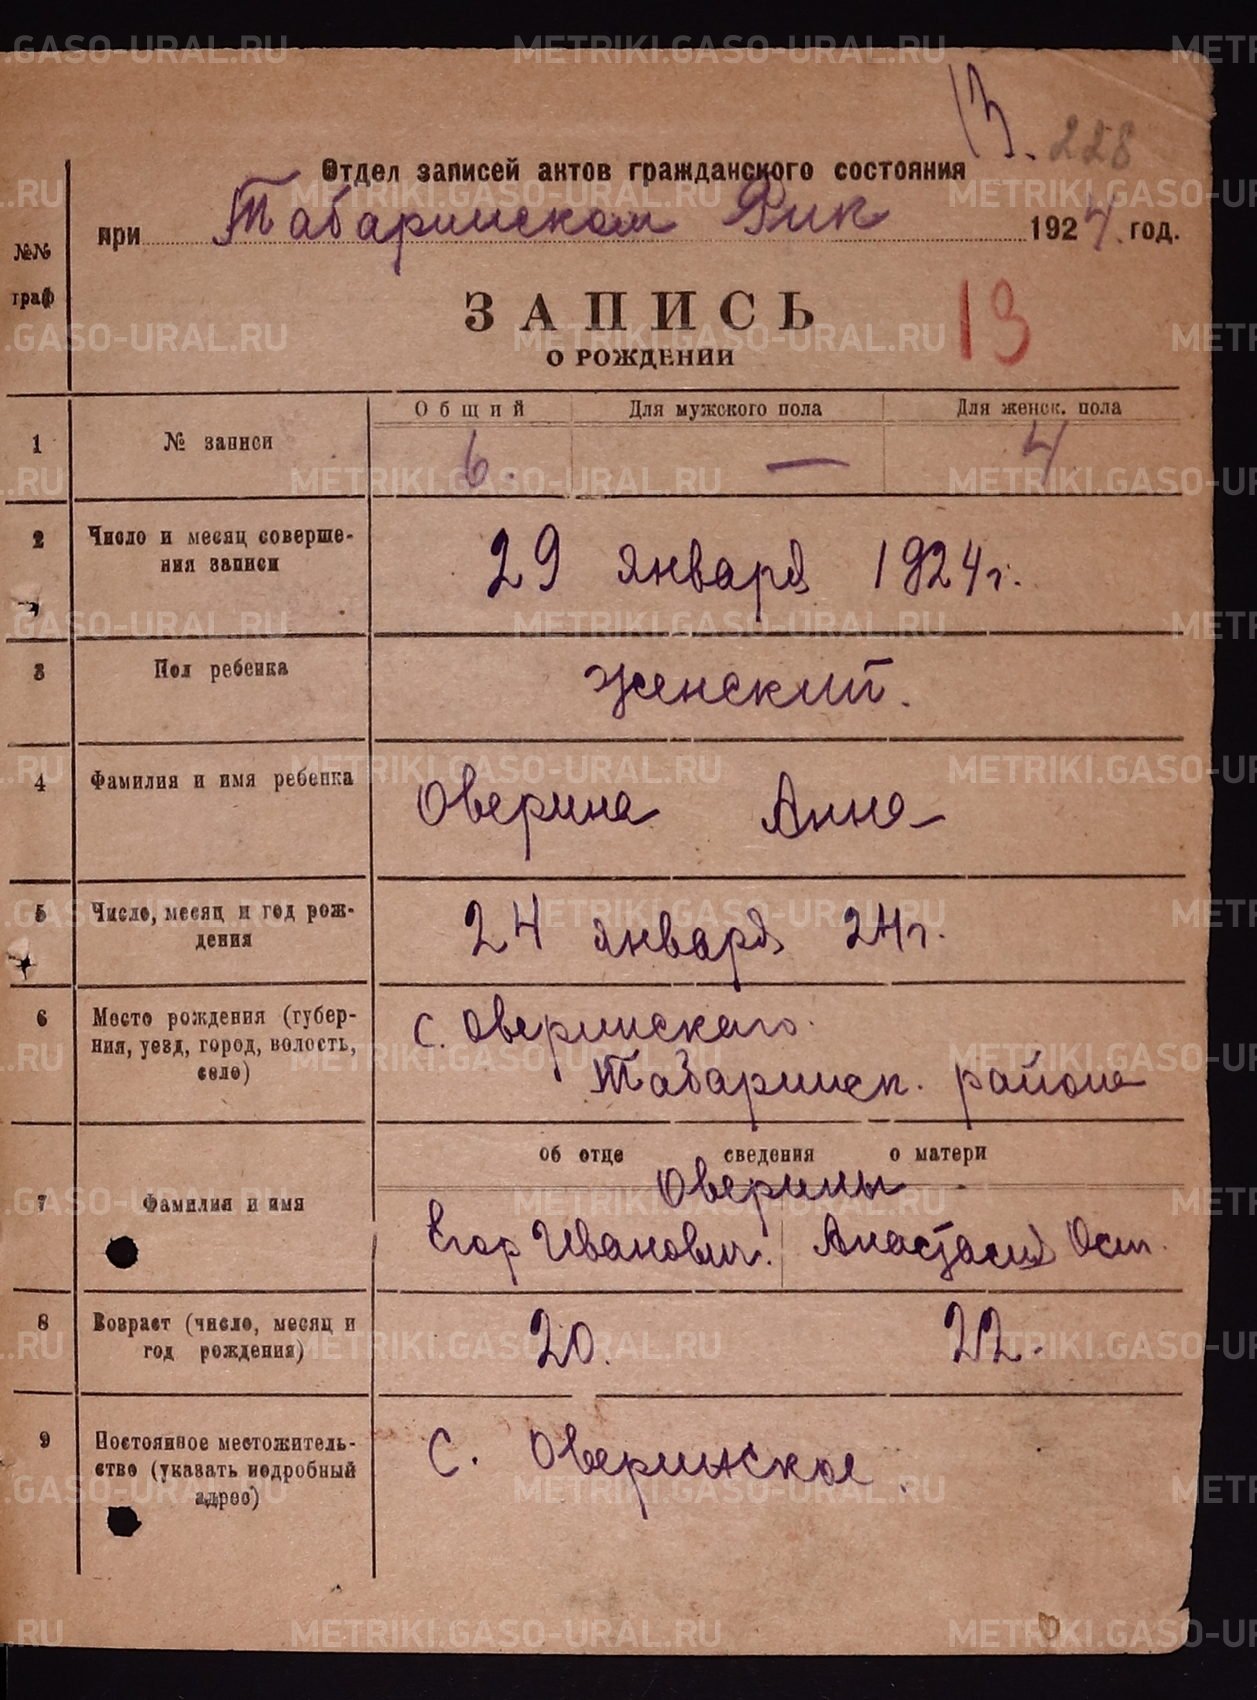 13. 228
Отдел записей актов гражданского состояния
при Табаринском Рик 1924. год.
№№
граф
ЗАПИСЬ
13
О РОЖДЕНИИ
Общий Для мужского пола Для женск. пола
1 № записи 6. — 4
2 Число и месяц соверше-
ния записи
29 января 1924 г.
3 Пол ребенка женский.
4 Фамилия и имя ребенка Оверина Анна
5 Число, месяц и год рож-
дения
24 января 24 г.
6 Место рождения (губер-
ния, уезд, город, волость,
село)
с. Оверинскаго
Табаринск. района
об отце сведения о матери
Оверины
7 Фамилия и имя
Егор Иванович. Анастасия Осип.
8 Возраст (число, месяц и
год рождения)
20. 22.
9 Постоянное местожитель-
ство (указать подробный
адрес)
С. Оверинское.
METRIKI.GASO-URAL.RU